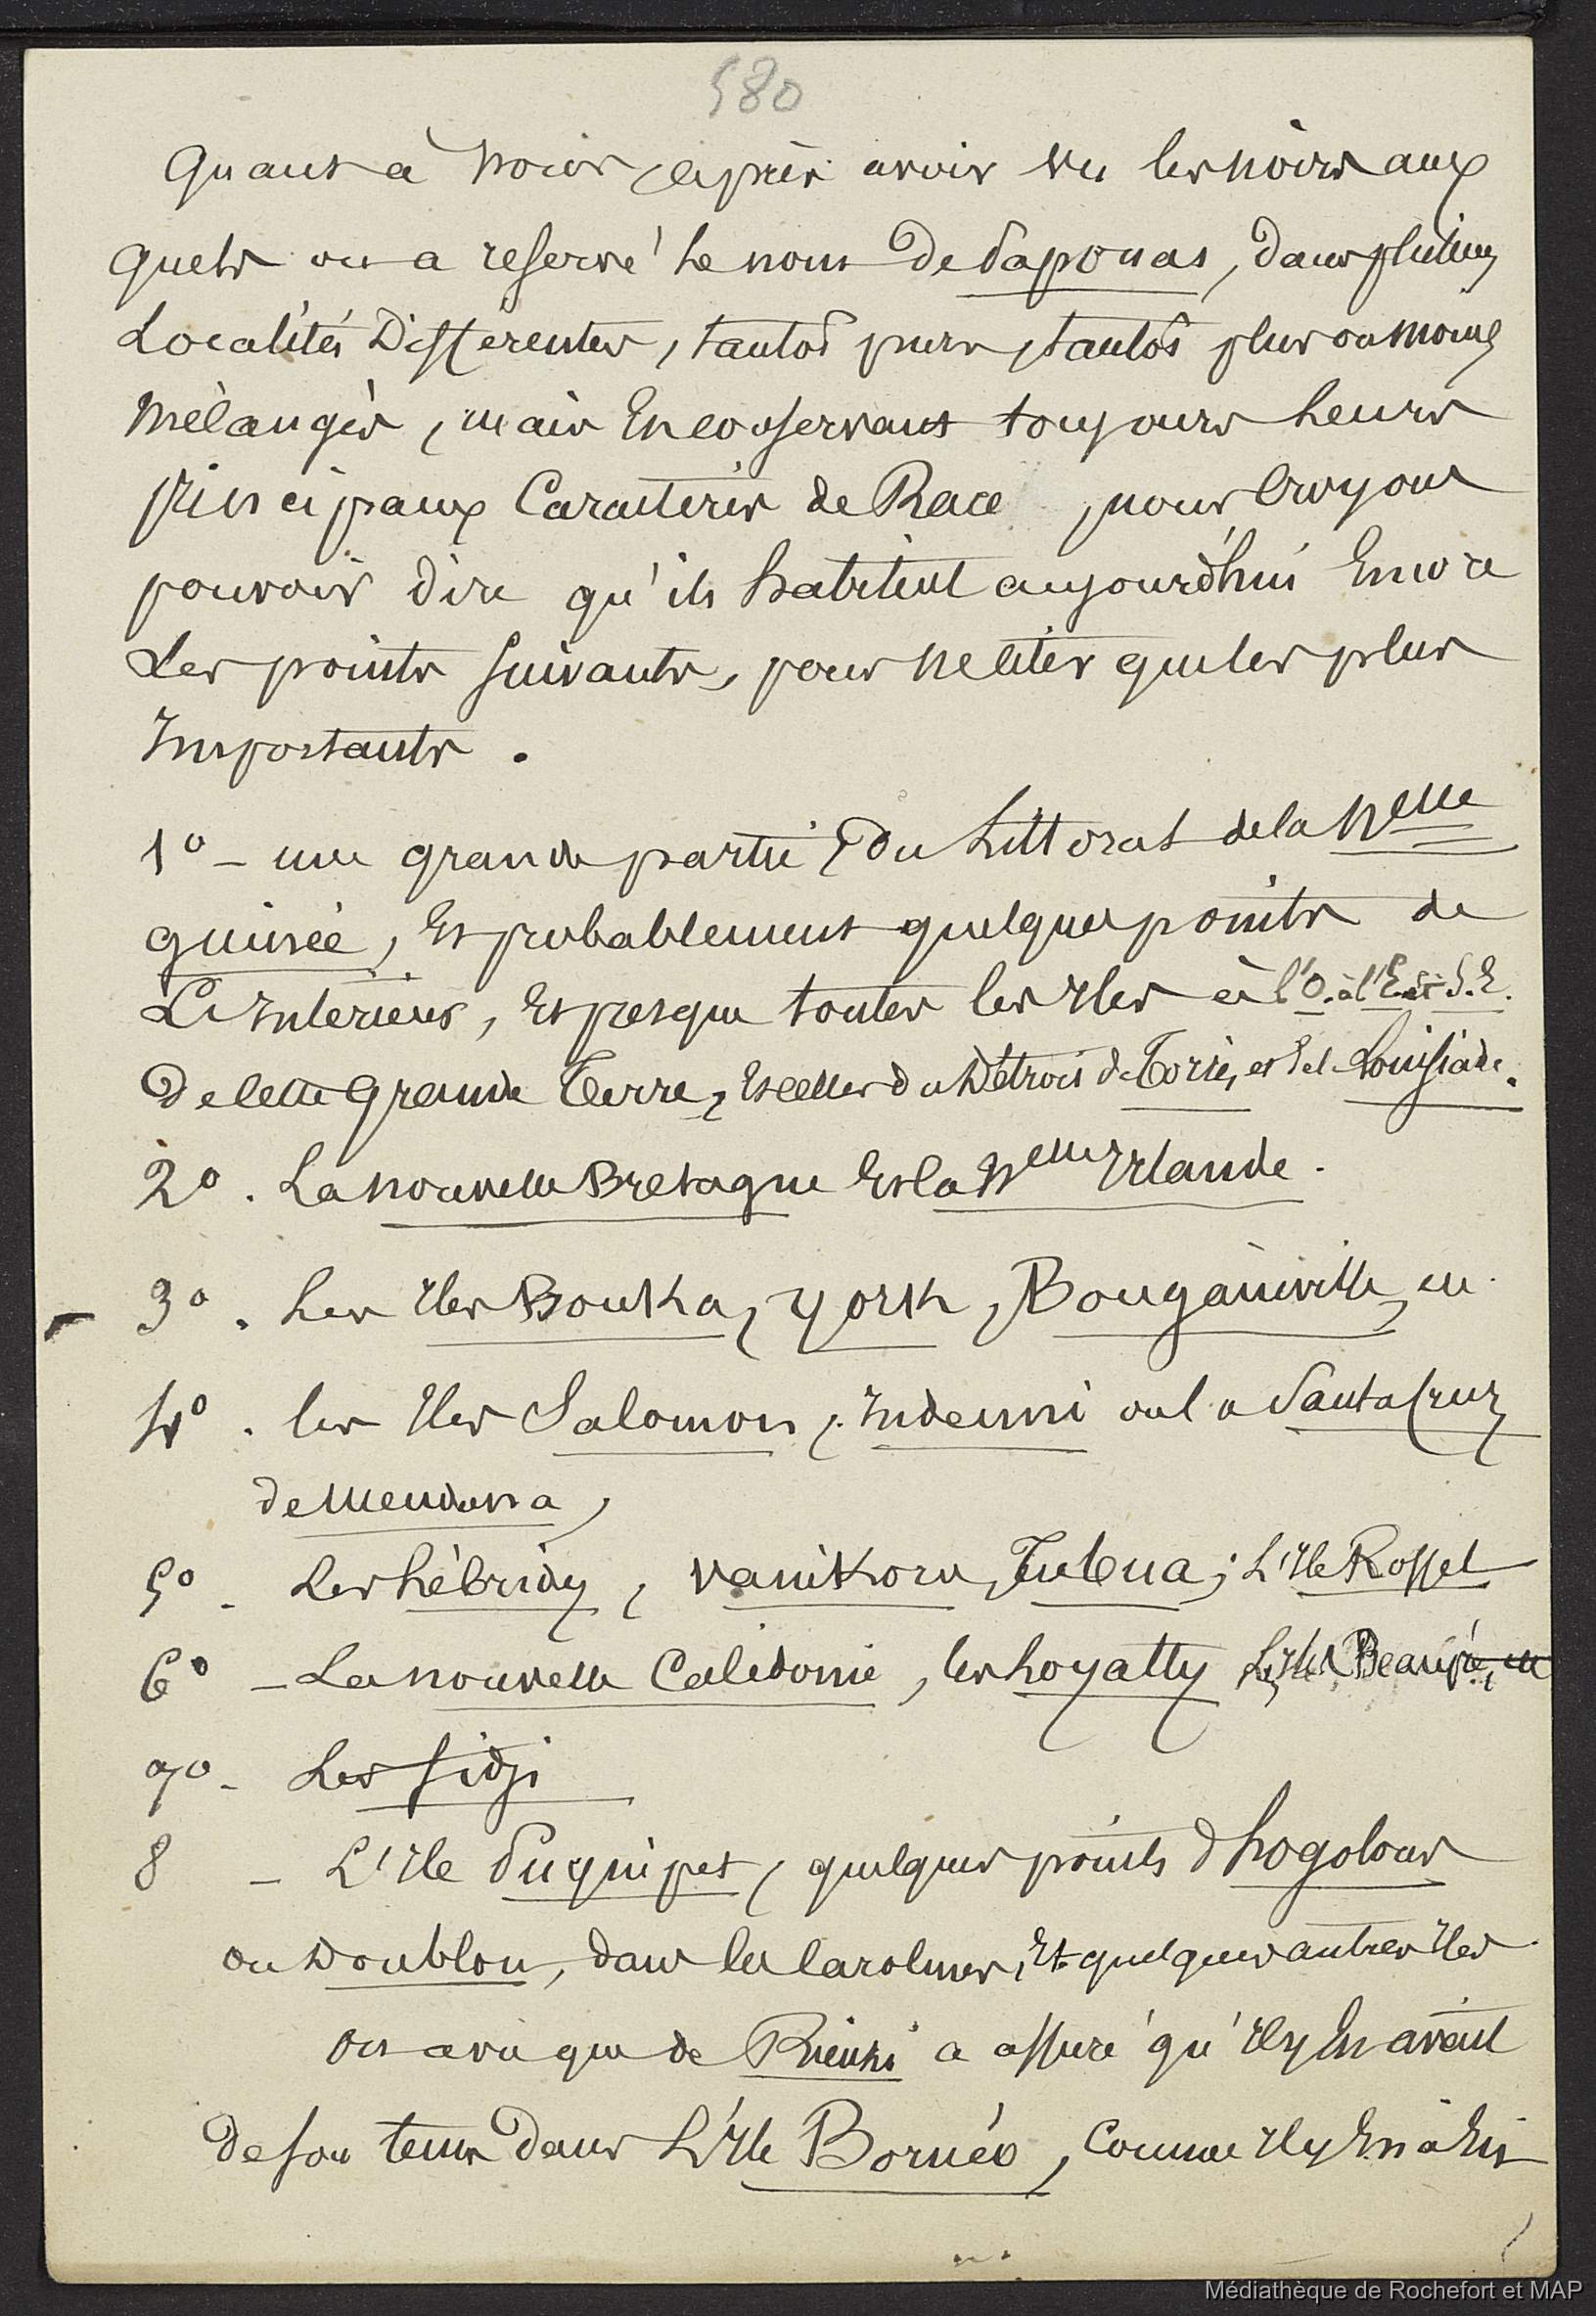 580
Quant à nous, après avoir vu les noirs aux
quels on a reservé le nom de Papouas, dans plusieurs
Localités Differentes, tantot purs, tantôt plus ou moins
mélangés, mais En conservant toujours leurs
principaux Caracteres de Race, nous Croyons
pouvoir dire qu'ils habitent aujourd'hui Encore
Les points suivants, pour ne citer que les plus
Importants.
1º - une grande partie du Littoral de la Nelle
guinée, Et probablement quelques points de
L'Interieur, Et presque toutes les Iles à l'O. à l'E. et S.E.
De cette Grande Terre, Et celles du Détroit de Torrès, et de la Louisiade.
2º. La nouvelle Bretagne Et la Nelle Irlande.
3º. Les Iles Bouka, York, Bougainville, &a
4º. les Iles Salomon, Indenni ou la Santa Cruz
de Mendana,
5º. Les hébrides, vanikoro, Tucopia; L'Ile Rossel
6º - La nouvelle Calédonie, les Loyalty, Les Iles Beaupré, &a
7º - Les fidji
8 - L'Ile Puynipet, quelques points d'hogolous
ou Doublon, dans les Carolines, Et quelques autres Iles
On a vu que de Rienzi a assuré qu'Il y En avait
De son tems Dans L'Ile Bornéo, Comme Il y En a En
Médiathèque de Rochefort et MAP